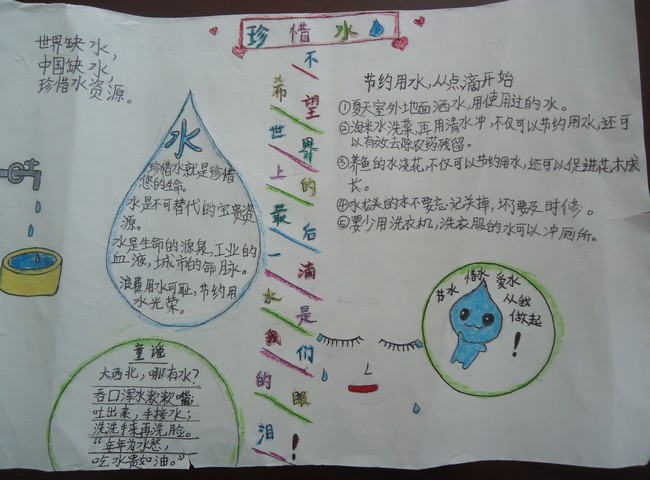 珍惜水
世界缺水,
中国缺水,
珍惜水资源。
水
珍惜水就是珍惜
您的生命。
水是不可替代的宝贵资
源。
水是生命的源泉,工业的
血液,城市的命脉。
浪费用水可耻,节约用
水光荣。
童谣
大西北,哪有水?
口浑水漱漱嘴;
吐出来,手接水;
洗洗手来再洗脸。
“年年为水愁,
吃水贵如油。”
不希望世界上的最后一滴水是我们的眼泪!
节约用水,从点滴开始
①夏天室外地面洒水,用使用过的水。
②淘米水洗菜,再用清水冲,不仅可以节约用水,还可
以有效去除农药残留。
③养鱼的水浇花,不仅可以节约用水,还可以促进花木成
长。
④水龙头的水不要忘记关掉,坏了要及时修。
⑤要少用洗衣机,洗衣服的水可以冲厕所。
节水 惜水 爱水
从我
做起
!